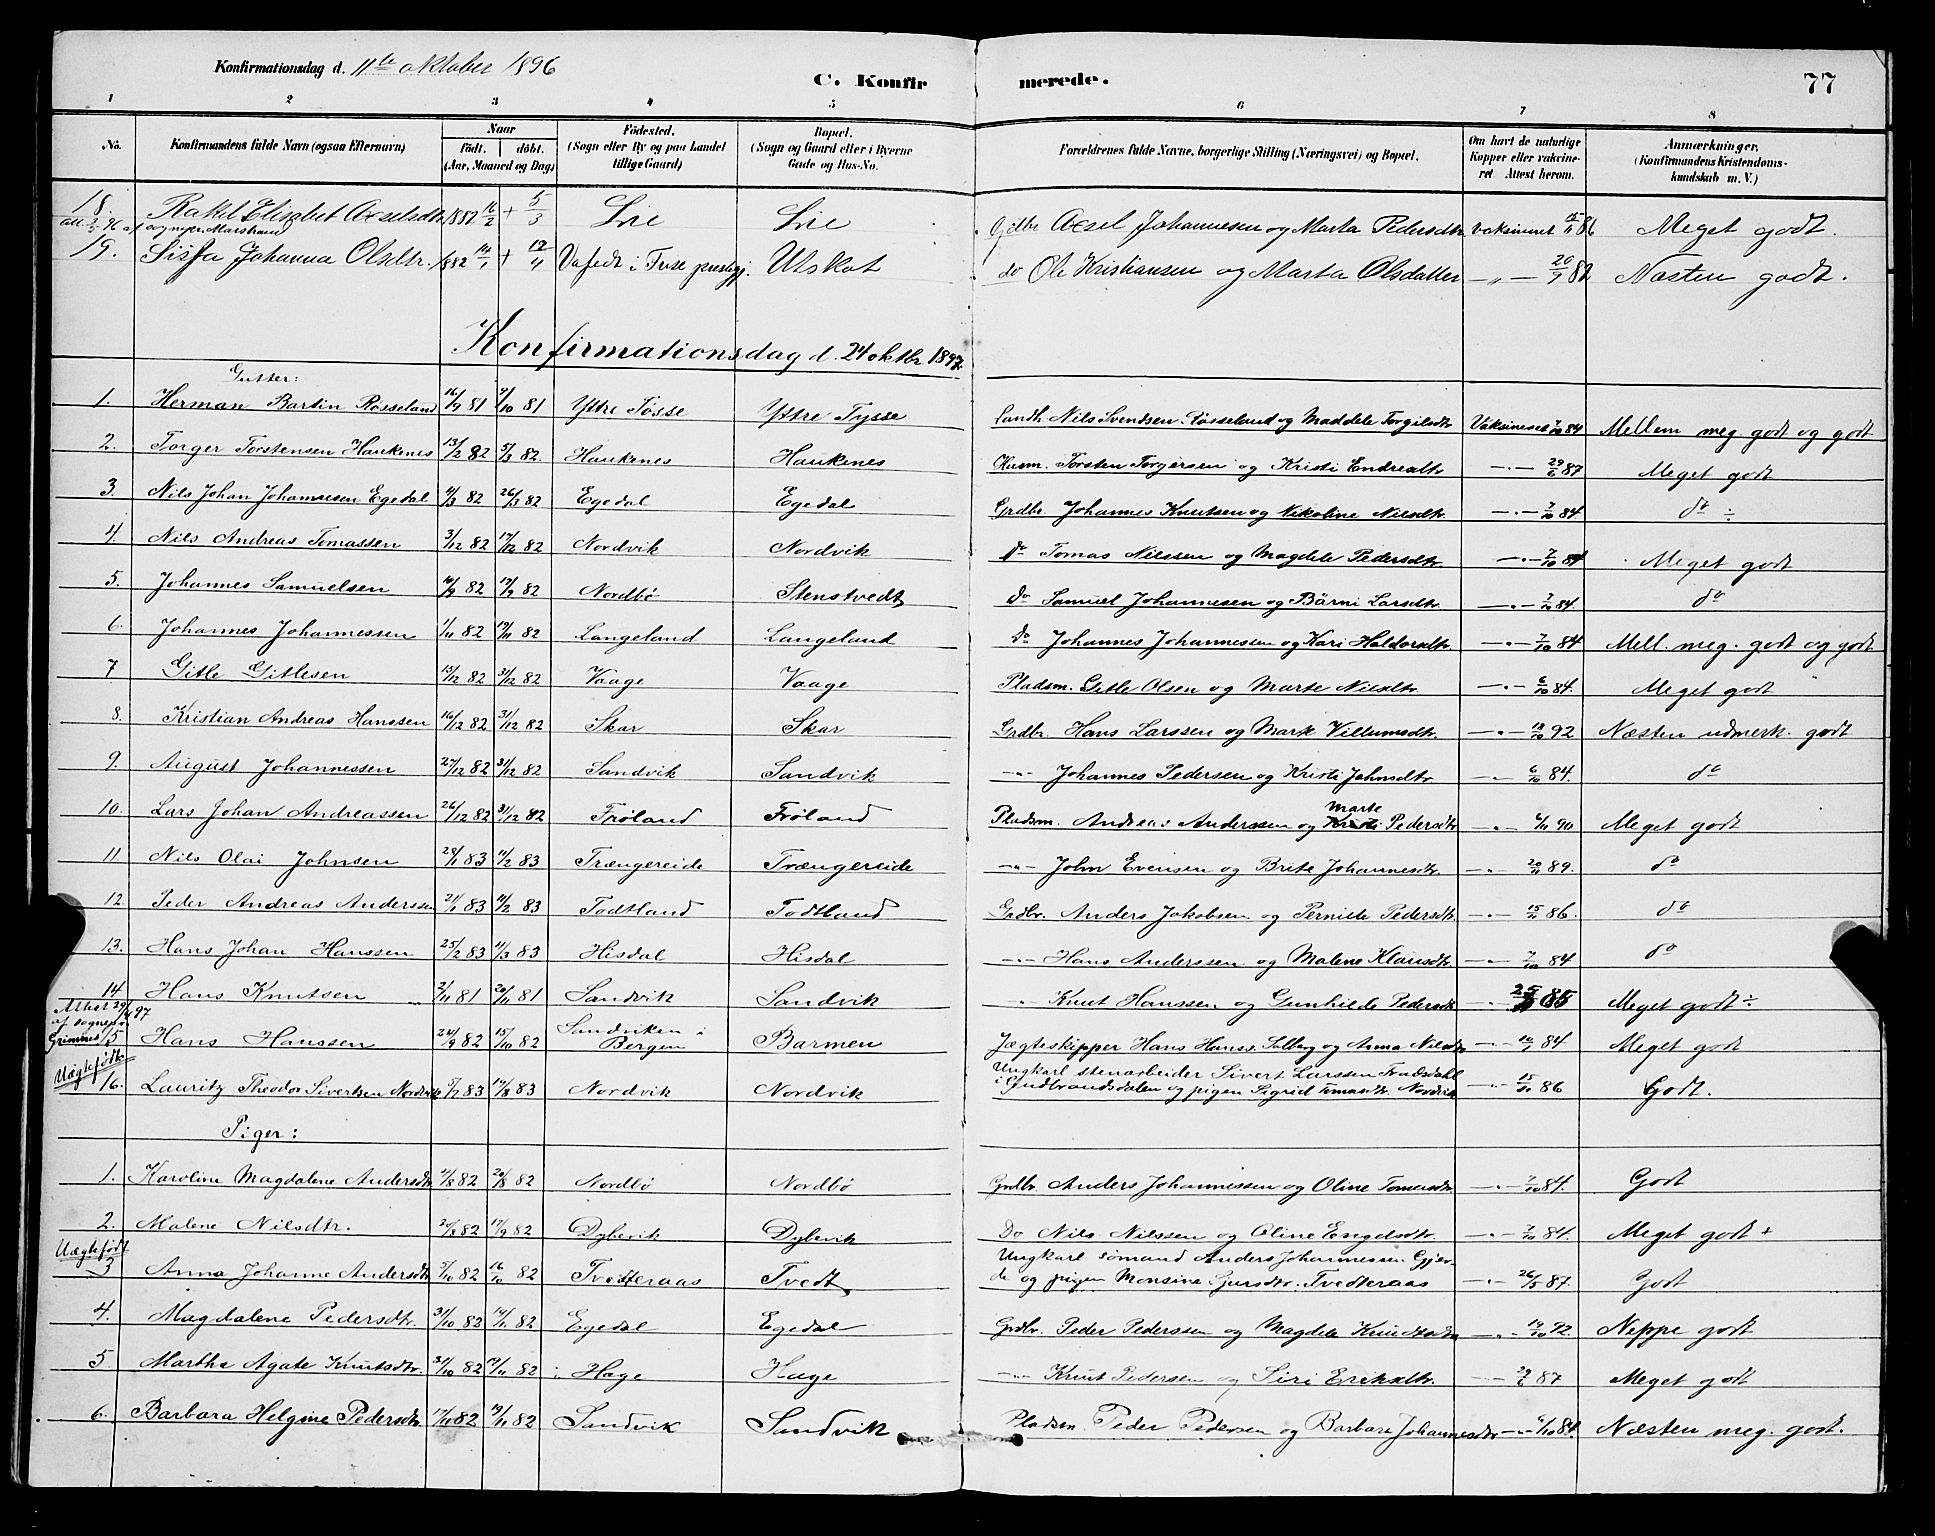 Konfirmationsdag d. 11te oktober 1896
C. Konfir merede. 77
1 2 3 4 5 6 7 8
No. Konfirmandens fulde Navn (ogsaa Efternavn) Naar født. døbt. (Aar, Maaned og Dag) Fødested. (Sogn eller By og paa Landet tillige Gaard) Bopæl. (Sogn og Gaard eller i Byerne Gade og Hus-No. Forældrenes fulde Navne, borgerlige Stilling (Næringsvei) og Bopæl. Om havt de naturlige Kopper eller vakcineret. Attest herom. Anmærkninger. (Konfirmandens Kristendomskundskab m. V.)
18. Rakel Elisabet Axelsdtr 1882 16/2 + 5/3 Lie Lie Gdbr Axel Johannesen og Marta Pedersdtr vaksineret 86 Meget godt.
sognepr. Marstrand
19. Sissa Johanna Olsdtr. 882 14/1 + 12/4 i Fuse præstegj. Utskot do Ole Kristiansen og Marta Olsdatter — „ — 20/9 82 Næsten godt.
Konfirmationsdag d. 24 oktbr 1897
Gutter:
1. Herman Bartin Røsseland 16/9 81 9/10 81 Yttre Tøsse Yttre Tysse Landh. Nils Svendsen Røsseland og Maddele Torgilsdtr Vaksineret 7/10 84 Mellem meg. godt og godt
2. Torger Torstensen Haukenes 13/2 82 5/3 82. Haukenes Haukenes Husm. Torsten Torgersen og Kristi Endresdtr — „ — 29/6 87 Meget godt
3. Nils Johan Johannesen Egedal 4/3 82 26/3 82 Egedal Egedal Grdbr. Johannes Knutsen og Nikoline Nilsdtr. — „ — 7/10 84. do ÷
4. Nils Andreas Tomassen 3/12 82 17/12 82 Nordvik Nordvik do Tomas Nilssen og Magdele Pedersdtr. — „ — 7/10 84 Meget godt
5. Johannes Samuelsen 82 17/9 82 Nordbø Stenstvedt Do Samuel Johannesen og Børni Larsdtr. — „ — 7/10 84. do
6. Johannes Johannessen 1/11 82 19/11 82 Langeland Langeland Do Johannes Johannesen og Kari Haldorsdtr. — „ — 7/10 84 Mell. meg. godt og godt
7 Gitle Gitlesen 15/12 82 31/12 82 Vaage Vaage Pladsm. Gitle Olsen og Marte Nilsdtr. — „ — 6/10 84. Meget godt
8. Kristian Andreas Hanssen 16/12 82 31/12 82 Skar Skar Grdbr. Hans Larssen og Mark Villumsdtr. — „ — 18/10 92 Næsten udmerk. godt
9. August Johannessen 27/12 82 31/12 82 Sandvik Sandvik — „ — Johannes Pedersen og Kristi Johnsdtr — „ — 6/10 84. do
10. Lars Johan Andreassen 26/12 82 31/12 82 Frøland Frøland Pladsm. Andreas Anderssen og Marte Pedersdtr — „ — 6/11 90 Meget godt
11 Nils Olai Johnsen 28/1 83 11/2 83 Trængereide Trængereide — „ — John Evensen og Brite Johannesdtr. — „ — 89. do
12. Peder Andreas Anderssen 21/1 83 11/2 83 Todtland Todtland Grdbr. Anders Jakobsen og Pernille Pedersdtr. — „ — 86. do
13. Hans Johan Hanssen 25/2 83 11/3 83 Hisdal Hisdal — „ — Hans Anderssen og Malene Klausdtr. — „ — 7/10 84 do
14 Hans Knutsen 2/11 81 20/11 81 Sandvik Sandvik „ Knut Hanssen og Gunhilde Pedersdtr — „ — 85 Meget godt ÷
Attest 29/4 97
af sognepr.
Grimnes 15 Hans Hanssen 24/9 82 15/10 82 Sandviken i Bergen Barmen Jægteskipper Hans Hanss. Solberg og Anna Nilsdtr — „ — 84 Meget godt
Uægtefødt
16. Lauritz Theodor Sivertsen Nordvik 5/7 83 19/8 83 Nordvik Nordvik Ungkarl stenarbeider Sivert Larssen
i Gudbrandsdalen og pigen Sigrid Tomasdtr. Nordvik — „ — 15/10 86 Godt.
Piger:
1. Karoline Magdalene Andersdtr. 11/8 82 20/8 82 Nordbø Nordbø Grdbr. Anders Johannessen og Oline Tomasdtr. — „ — 7/10 84. Godt
2. Malene Nilsdtr. 82 17/9 82 Dybevik Dybevik Do Nils Nilssen og Oline Engelsdtr. — „ — 7/10 84. Meget godt +
Uægtefødt
3 Anna Johanne Andersdtr 5/10 82 16/10 82 Tvedteraas Tvedt Ungkarl sømand Anders Johannessen Gjer-
de og pigen Monsine Gursdtr. Tvedteraas — „ — 26/5 87. Godt
4. Magdalene Pedersdtr. 31/10 82 19/11 82 Egedal Egedal Grdbr. Peder Pederssen og Magdele Knudtsdtr — „ — 19/10 92 Neppe godt
5 Martha Agate Knutsdtr. 31/10 82 19/11 82 Hage Hage — „ — Knut Pedersen og Siri Eriksdtr. 29/6 87 Meget godt
6. Barbara Helgine Pedersdtr. 17/11 82 19/11 82 Sandvik Sandvik Pladsm. Peder Pedersen og Barbara Johannesdtr — „ — 6/10 84. Næsten meg. godt.